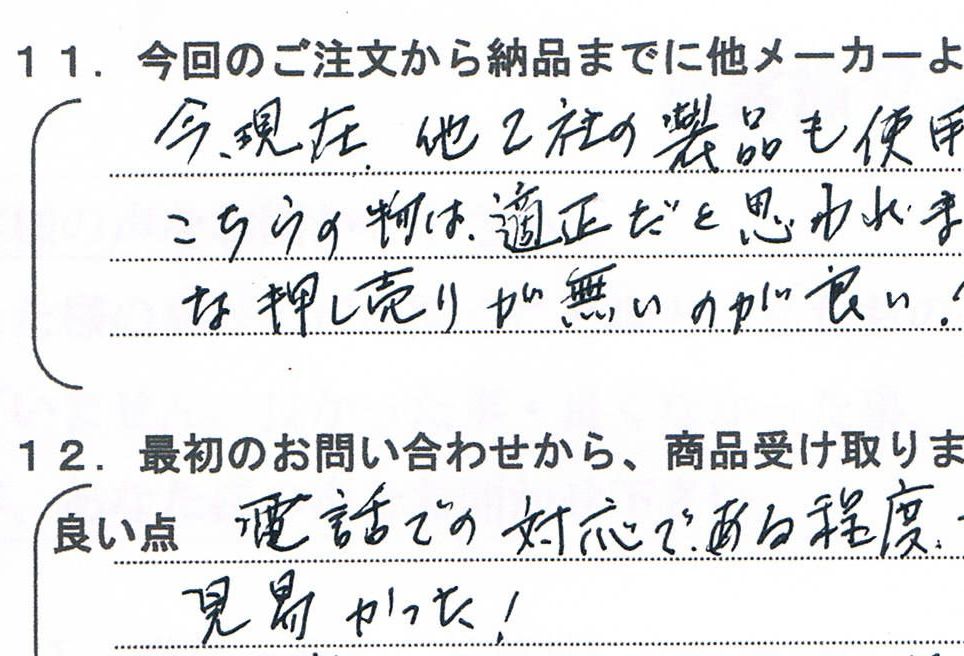 11．今回のご注文から納品までに他メーカーよ
今、現在、他2社の製品も使用
こちらの物は、適正だと思われま
な押し売りが無いのが良い！
12．最初のお問い合わせから、商品受け取りま
良い点 電話での対応で、ある程度、
見易かった！